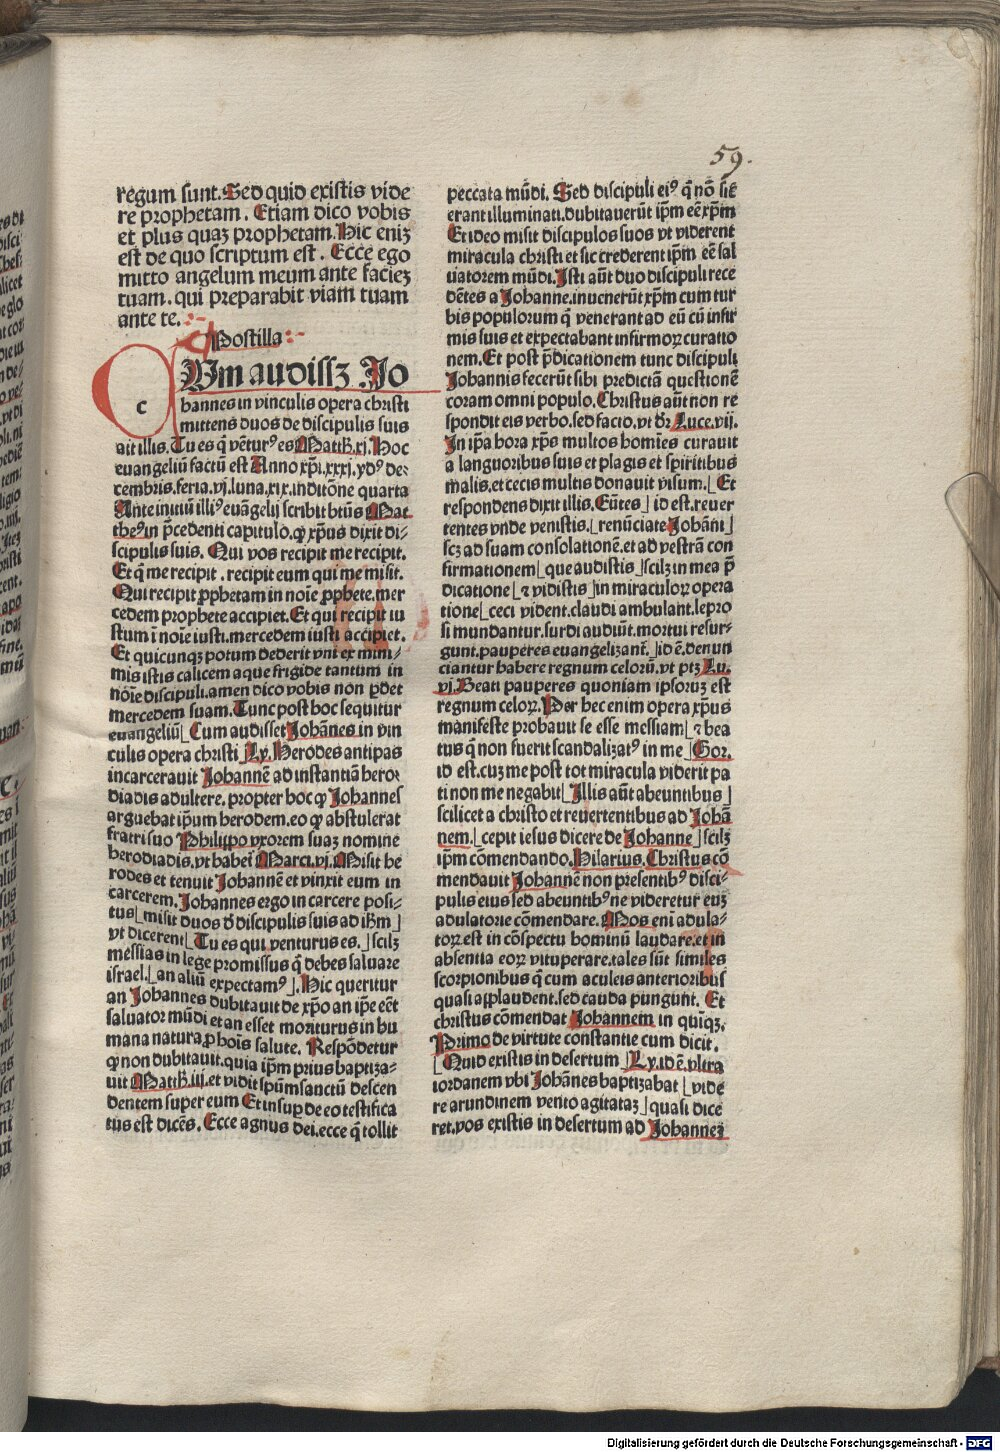 59.
regum sunt. Sed quid existis vide
re prophetam. Etiam dico vobis
et plus quaꝫ prophetam. Hic eniꝫ
est de quo scriptum est. Ecce ego
mitto angelum meum ante facieꝫ
tuam. qui preparabit viam tuam
ante te.
Postilla
c
Um audissꝫ Jo
hannes in vinculis opera christi
mittens duos de discipulis suis
ait illis. Tu es q̄ ventur⁹ es Matth. xj. Hoc
euangeliū factū est Anno xp̄i. xxxj. yd⁹ de⸗
cembris. feria. vj. luna. xix. inditōne quarta
Ante initiū illi⁹ euāgelij scribit btūs Mat
the⁹ in p̄cedenti capitulo. ꝙ xp̄us dixit di⸗
scipulis suis. Qui vos recipit me recipit.
Et q̄ me recipit. recipit eum qui me misit.
Qui recipit ꝓphetam in noīe ꝓphete. mer
cedem prophete accipiet. Et qui recipit iu
stum ī noīe iusti. mercedem iusti accipiet.
Et quicunqꝫ potum dederit vni ex mini⸗
mis istis calicem aque frigide tantum in
noīe discipuli. amen dico vobis non ꝑdet
mercedem suam. Tunc post hoc sequitur
euangeliū⌊ Cum audisset Johānes in vin
culis opera christi ⌊Ly. Herodes antipas
incarcerauit Johannē ad instantiā hero⸗
diadis adultere. propter hoc ꝙ Johannes
arguebat ipsum herodem. eo ꝙ abstulerat
fratri suo Philippo vxorem suaꝫ nomine
herodiadis. vt habeī Marci. vj. Misit he
rodes et tenuit Johannē et vinxit eum in
carcerem. Johannes ergo in carcere posi⸗
tus⌊ misit duos d̄ discipulis suis ad ih̄m⌋
vt dicerent⌊ Tu es qui venturus es.⌋scilꝫ
messias in lege promissus q̄ debes saluare
israel.⌊ an aliū expectam⁹⌋. Hic queritur
an Johannes dubitauit de xp̄o an ip̄e eēt
saluator mūdi et an esset moriturus in hu
mana natura ꝓ hoīs salute. Respōdetur
ꝙ non dubitauit. quia ip̄m prius baptiza⸗
uit Matth. iij. et vidit spūm sanctū descen
dentem super eum Et insuꝑ de eo testifica
tus est dicēs. Ecce agnus dei. ecce q̄ tollit
peccata mūdi. Sed discipuli ei⁹ q̄ nō sic̄
erant illuminati. dubitauerūt ip̄m eē xp̄m
Et ideo misit discipulos suos vt viderent
miracula christi et sic crederent ip̄m eē sal
uatorem mūdi. Isti aūt duo discipuli rece
dētes a Johanne. inuenerūt xp̄m cum tur
bis populorum q̄ venerant ad eū cū infir
mis suis et expectabant infirmoꝝ curatio
nem. Et post p̄dicationem tunc discipuli
Johannis fecerūt sibi predictā questionē
coram omni populo. Christus aūt non re
spondit eis verbo. sed facto. vt dr̄ Luce. vij.
In ip̄a hora xp̄s multos homīes curauit
a languoribus suis et plagis et spiritibus
malis. et cecis multis donauit visum.⌊ Et
respondens dixit illis. Eūtes⌋ id est. reuer
tentes vnde venistis.⌊ renūciate Johāni⌋
scꝫ ad suam consolationē. et ad vestrā con
firmationem⌊ que audistis⌋scilꝫ in mea p̄
dicatione⌊ ⁊ vidistis⌋in miraculoꝝ opera
tione⌊ ceci vident. claudi ambulant. lepro
si mundantur. surdi audiūt. mortui resur⸗
gunt. pauperes euangelizant̄.⌋id ē. denun
ciantur habere regnum celorū. vt ptꝫ Lu.
vj. Beati pauperes quoniam ipsoruꝫ est
regnum celoꝝ. Per hec enim opera xp̄us
manifeste probauit se esse messiam⌊ ⁊ bea
tus q̄ non fuerit scandalizat⁹ in me⌋ Gor.
id est. cuꝫ me post tot miracula viderit pa
ti non me negabit⌊ Illis aūt abeuntibus⌋
scilicet a christo et reuertentibus ad Johā
nem.⌊ cepit iesus dicere de Johanne⌋scilꝫ
ip̄m cōmendando. Hilarius. Christus cō
mendauit Johannē non presentib⁹ disci⸗
pulis eius sed abeuntib⁹ ne videretur euꝫ
adulatorie cōmendare. Mos enī adula⸗
toꝝ est in cōspectu hominū laudare. et in
absentia eoꝝ vituperare. tales sūt similes
scorpionibus q̄ cum aculeis anterioribus
quasi applaudent. sed cauda pungunt. Et
christus cōmendat Johannem in quīqꝫ.
Primo de virtute constantie cum dicit.
⌊Quid existis in desertum⌋Ly. id ē. vltra
iordanem vbi Johānes baptizabat⌊ vide
re arundinem vento agitataꝫ⌋quasi dice
ret. vos existis in desertum ad Johanneꝫ
Digitalisierung gefördert durch die Deutsche Forschungsgemeinschaft - DFG